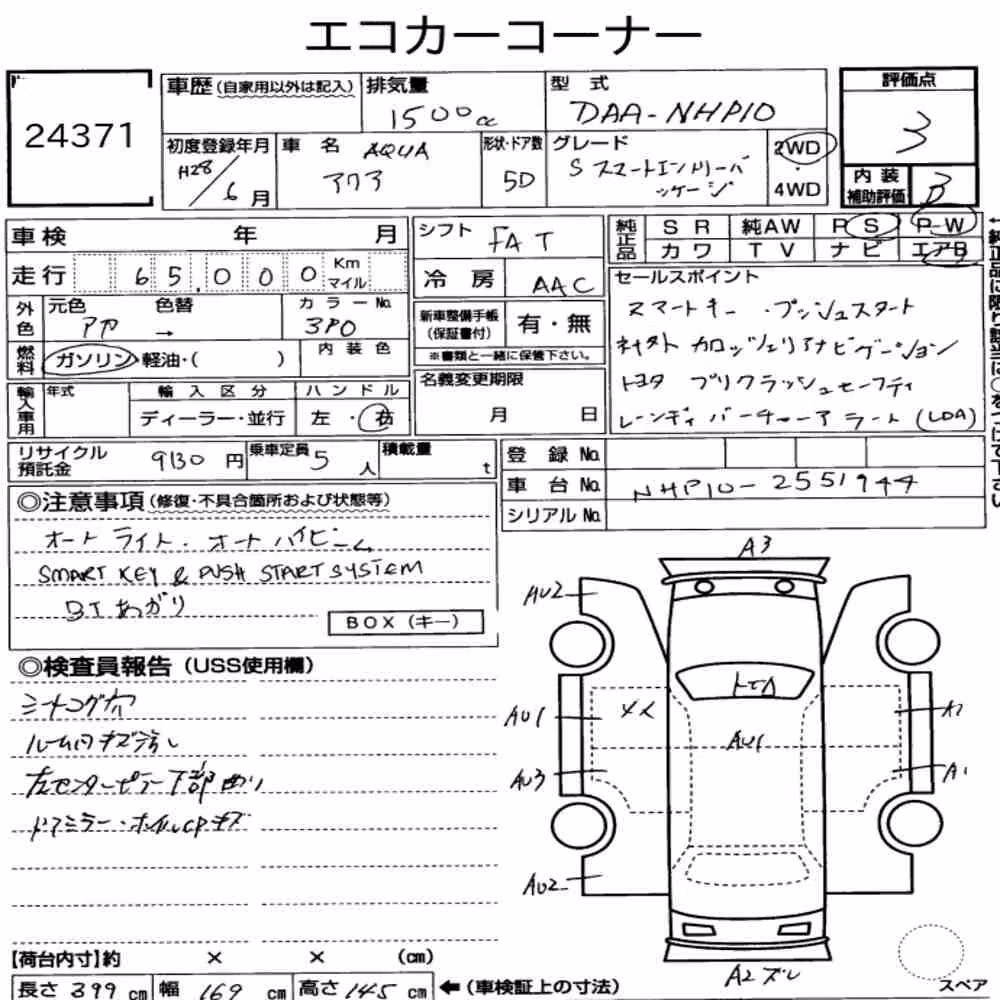 エコカーコーナー
24371
車歴 (自家用以外は記入)
排気量
1500cc
型式
DAA-NHP10
評価点
3
初度登録年月
H28/6月
車名 AQUA
アクア
形状・ドア数
5D
グレード
Sスマートエントリーパッケージ
2WD
・
4WD
内装
補助評価
B
車検 年 月
シフト FAT
純正品
SR 純AW PS P-W
カワ TV ナビ エアB
走行 65,000 Km
マイル
冷房 AAC
セールスポイント
スマートキー・プッシュスタート
社外 カロッツェリアナビゲーション
トヨタ プリクラッシュセーフティ
レーンディパーチャーアラート (LDA)
外色
元色 色替 カラーNo.
アカ → 3P0
新車整備手帳
(保証書付)
有・無
※書類と一緒に保管下さい。
燃料
ガソリン・軽油・( )
内装色
名義変更期限
月 日
輸入車用
年式 輸入区分 ハンドル
ディーラー・並行 左・右
リサイクル
預託金
9130円
乗車定員
5人
積載量
t
登録No.
車台No. NHP10-2551944
シリアルNo.
◎注意事項 (修復・不具合箇所および状態等)
オートライト・オートハイビーム
SMART KEY & PUSH START SYSTEM
BOX (キー)
◎検査員報告 (USS使用欄)
シートコゲ穴
ルーム内キズ汚れ
左センターピラー下部曲り
ドアミラー・ホイルCPキズ
A3
AU2
AU1
××
AU1
A1
AU3
A1
AU2
A2ズレ
スペア
【荷台内寸】約 × × (cm)
長さ 399cm 幅 169cm 高さ 145cm ←(車検証上の寸法)